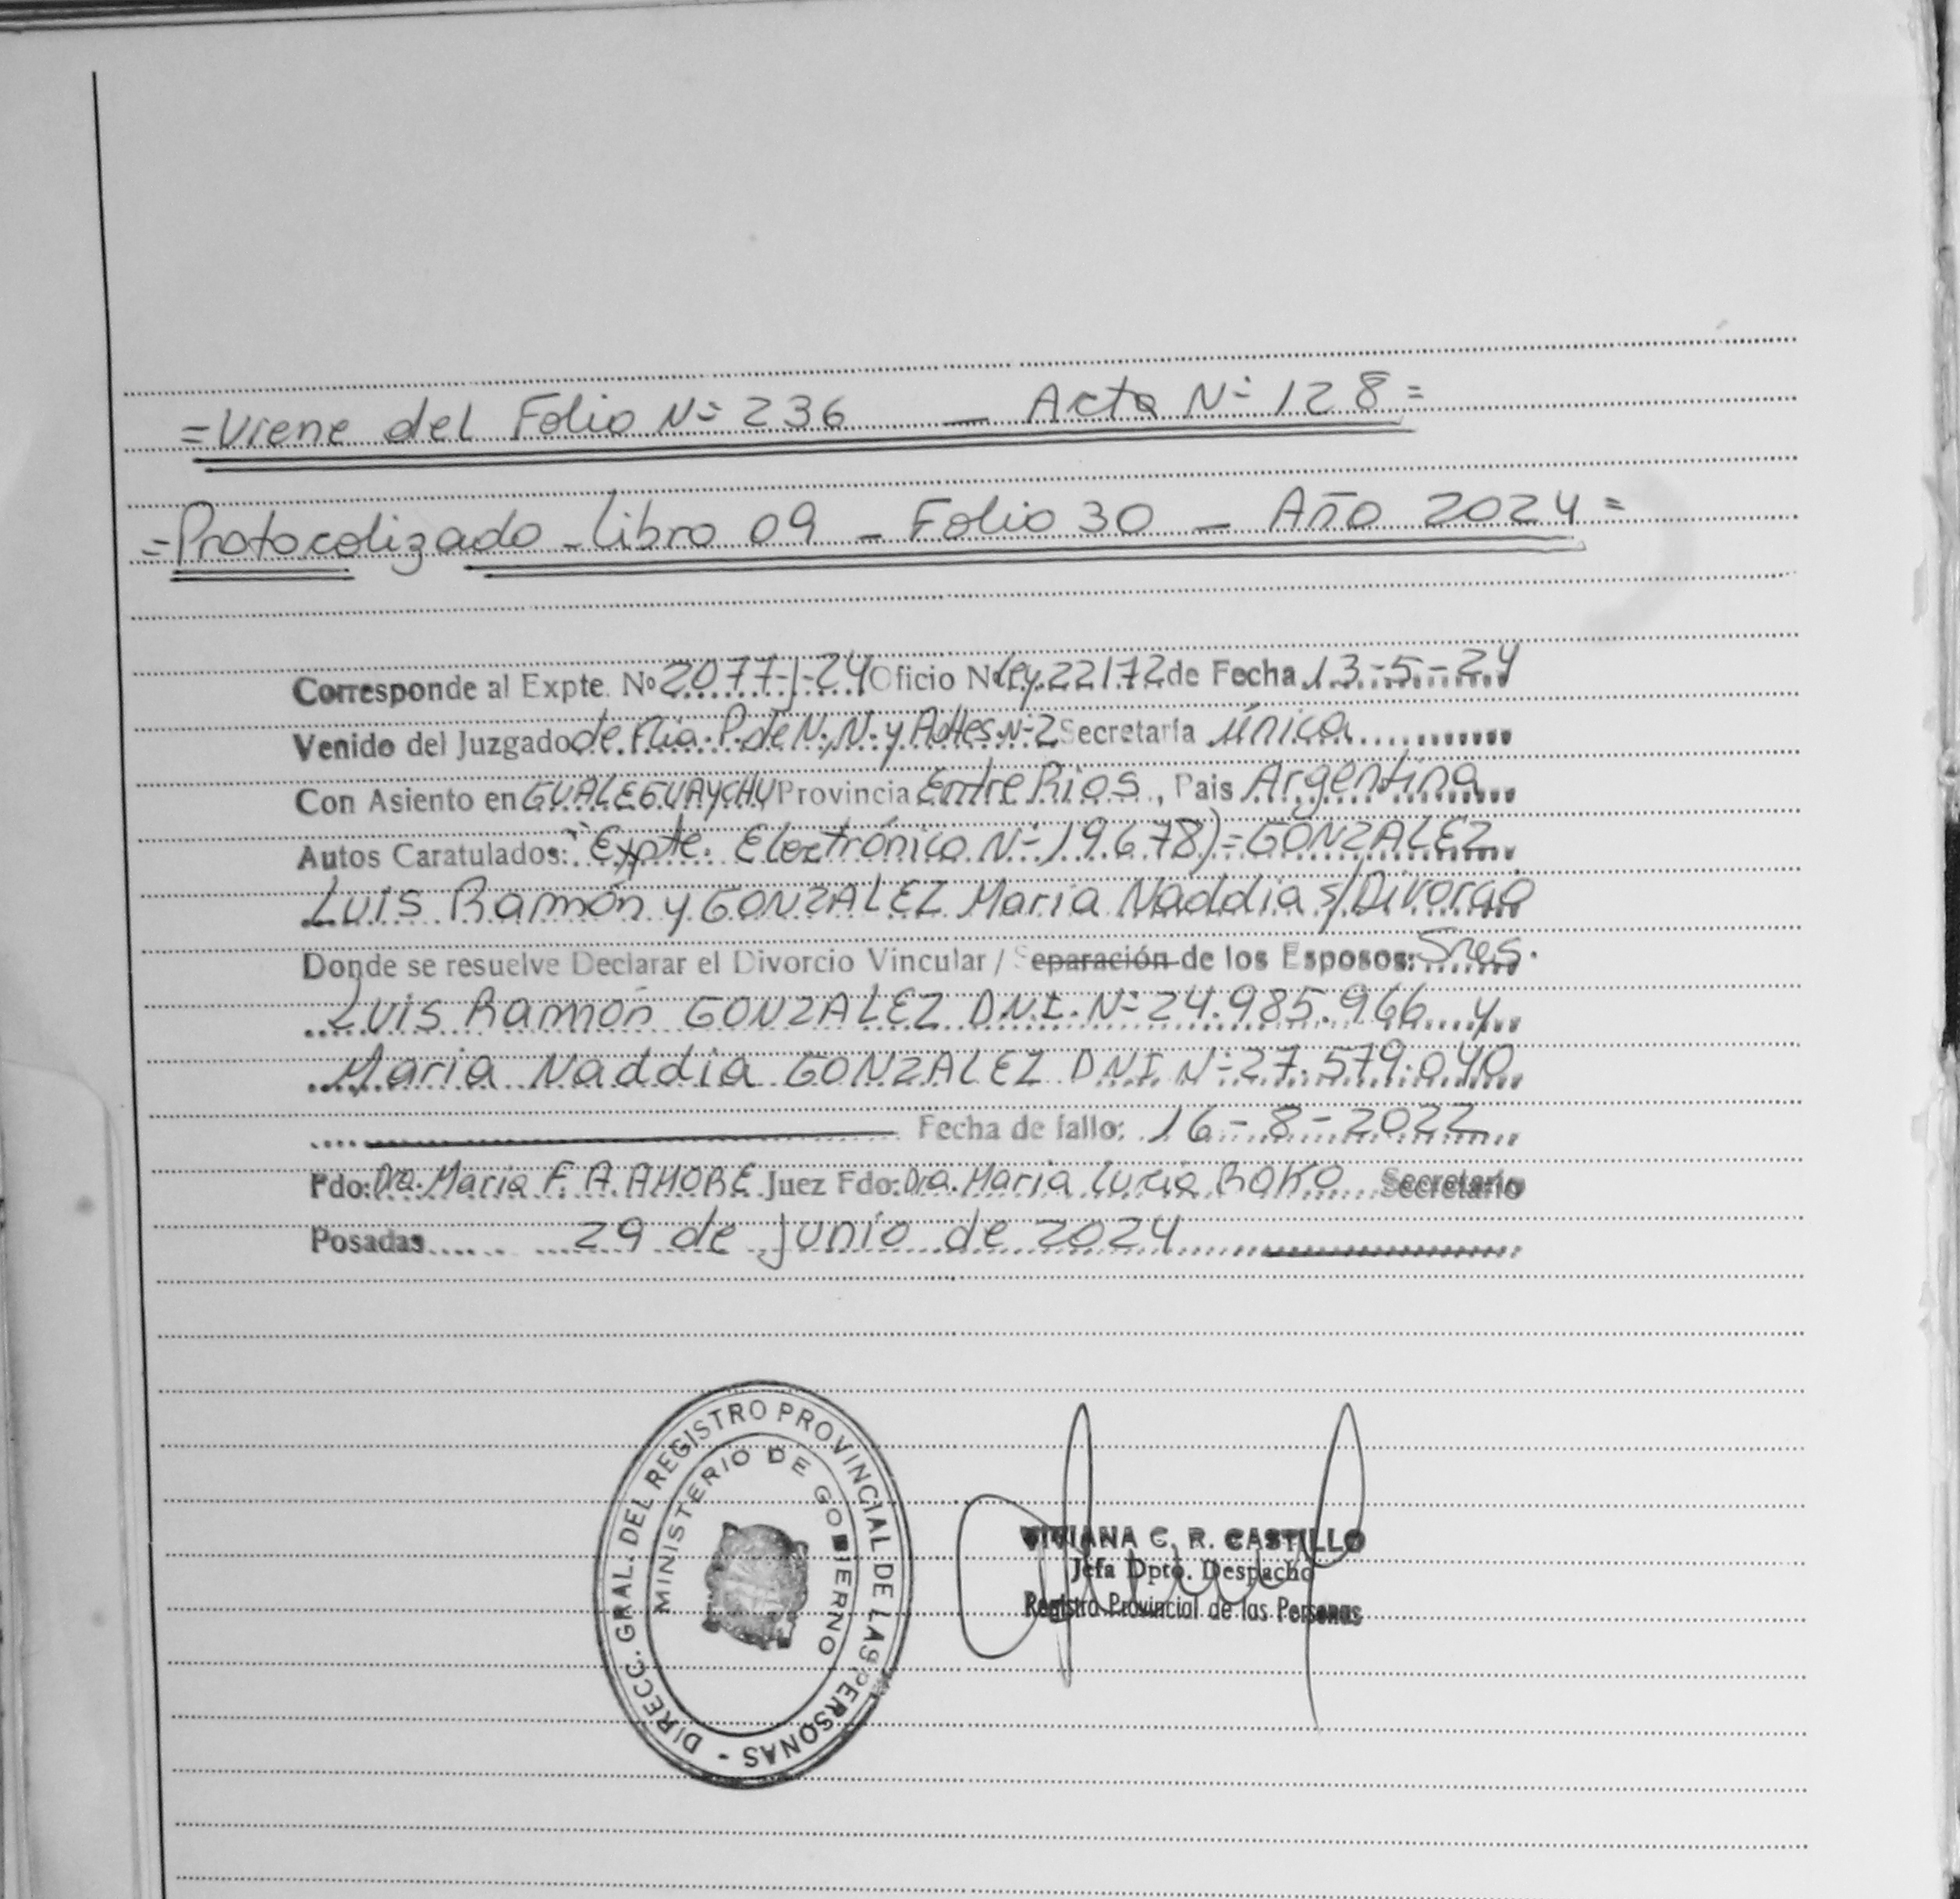 =Viene del Folio Nº 236 — Acta Nº 128=
=Protocolizado - Libro 09 - Folio 30 - Año 2024=
Corresponde al Expte. Nº 2077-J-24 Oficio Nº Ley 22172 de Fecha 13-5-24
Venido del Juzgado de Flia. P. de N., N. y Adtes. Nº 2 Secretaría única
Con Asiento en GUALEGUAYCHU Provincia Entre Rios, Pais Argentina
Autos Caratulados: "Expte. Electrónico Nº 19.678)=GONZALEZ
Luis Ramón y GONZALEZ Maria Naddia s/Divorcio
Donde se resuelve Declarar el Divorcio Vincular / Separación de los Esposos: Sres.
Luis Ramón GONZALEZ D.N.I. Nº 24.985.966 y
Maria Naddia GONZALEZ DNI Nº 27.579.040
Fecha de fallo: 16-8-2022
Fdo: Dra. Maria F. A. AMORE Juez Fdo: Dra. Maria Lucia ROKO Secretario
Posadas 29 de junio de 2024
DIRECC. GRAL. DEL REGISTRO PROVINCIAL DE LAS PERSONAS -
MINISTERIO DE GOBIERNO
VIVIANA C. R. CASTILLO
Jefa Dpto. Despacho
Registro Provincial de las Personas